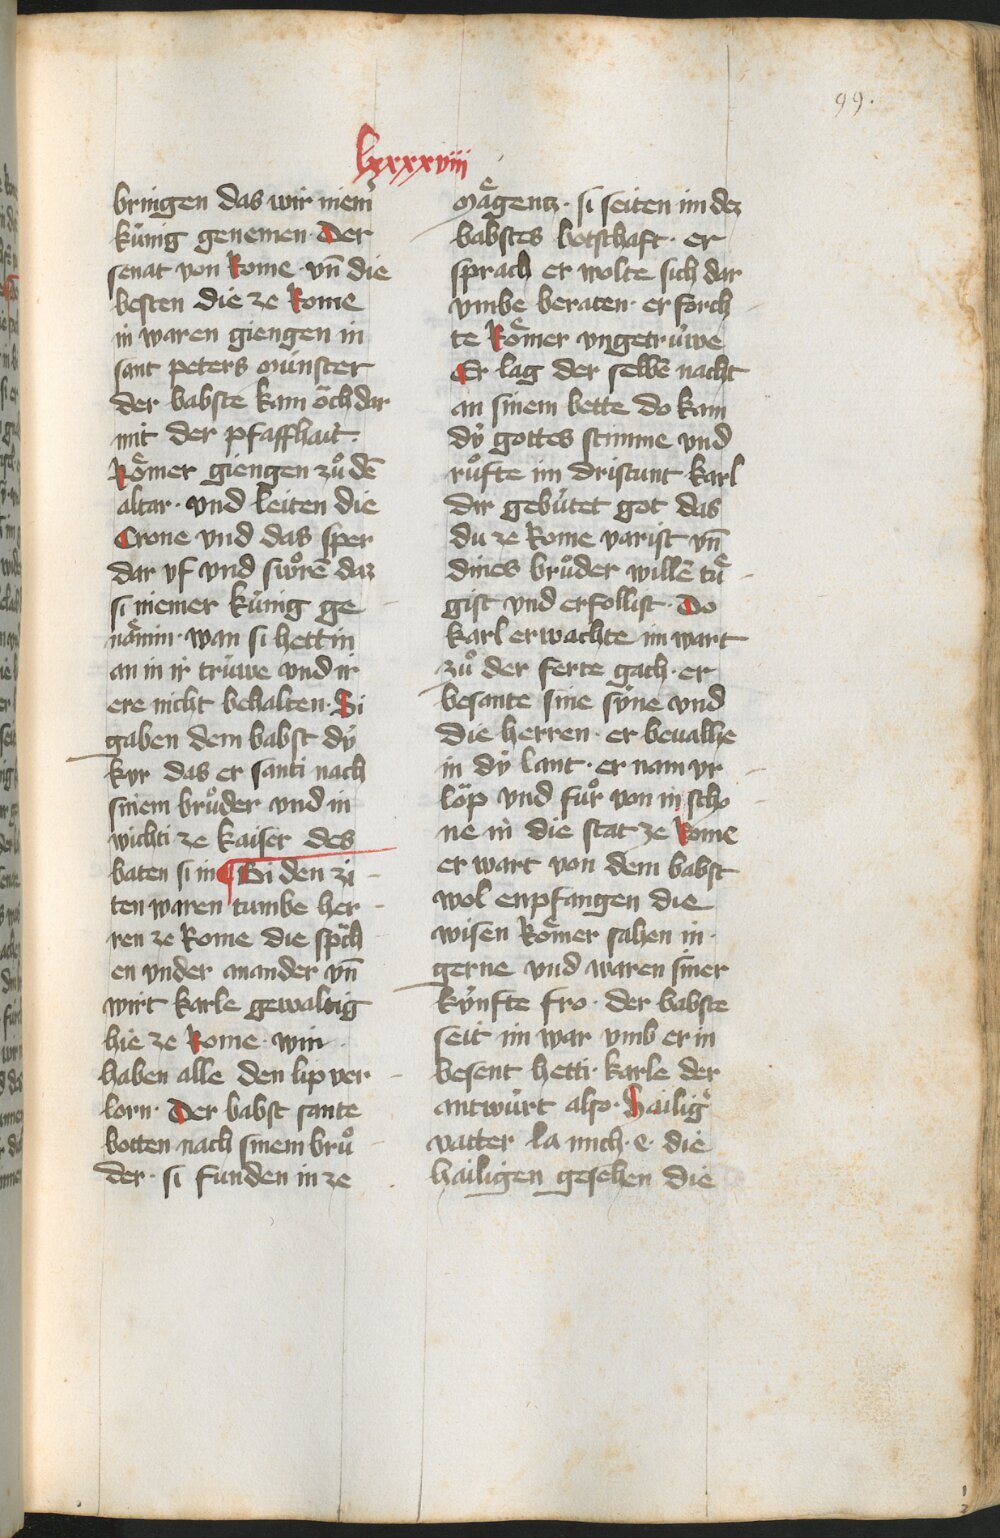 99.
lxxxxviii
bringen das wir niem̄
kúnig genemen. Der
senat von Rome. vn̄ die
besten die ze Rome
in waren giengen in
sant peters múnster
der babste kam ǒch dar
mit der pfaffhait.
Rͤomer giengen zů dē
altar. vnd leiten die
Crone vnd das sper
dar vf vnd swͦorē daz
si niemer kúnig ge
nͤamin. wan si hettin
an in ir trúwe vnd ir
ere nicht behalten. Si
gaben dem babst dÿ
kyr das er santi nach
sinem brůder vnd in
wichti ze kaiser des
baten si in ¶ Bi den zi
ten waren tumbe her
ren ze Rome die spͣch
en vnder anander vn̄
wirt karle gewaltig
hie ze Rome. wir
haben alle den lip ver
lorn. Der babst sante
botten nach sinem brů
der. si funden in ze
Mͤagentz. si seiten im dez
babstes botschaft. er
sprach er wolte sich dar
vmbe beraten. er forch
te Rͤomer vngetrúwe
Er lag der selbē nacht
an sinem bette do kam
dÿ gottes stimme vnd
růfte im dristunt karl
dir gebútet got das
du ze Rome varist vn̄
dines brůder willē tů
gist vnd erfollist. Do
karl erwachte im wart
zů der ferte gach. er
besante sine sÿne vnd
die herren. er beualhe
in dÿ lant. er nam vr
lͦop vnd fůr von in scho
ne in die stat ze Rome
er wart von dem babst
wol enpfangen die
wisen Rͤomer sahen in
gerne vnd waren siner
kÿnfte fro. der babste
seit im war vmb er in
besent hetti. karle der
antwúrt also. Hailig͛
vatter la mich. e. die
hailigen gesehen die